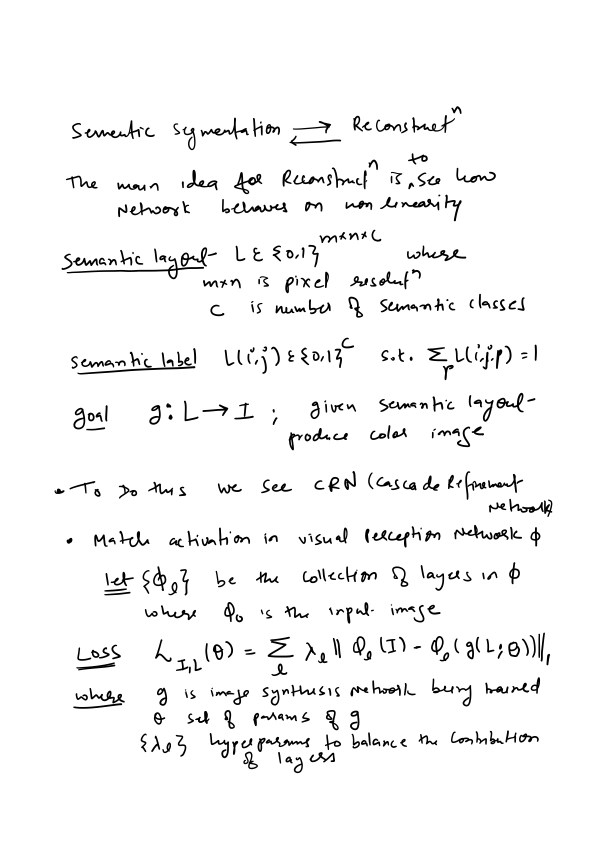 Sementic segmentation ⇄ Reconstructⁿ
The main idea for Reconstructⁿ is to see how
Network behaves on non linearity
Semantic layout L ε {0,1}^{m×n×C} where
m×n is pixel resolutⁿ
C is number of semantic classes
Semantic label L(i,j) ε {0,1}^C s.t. Σ_p L(i,j,p) = 1
goal g: L → I ; given semantic layout
produce color image
• To Do this we see CRN (Cascade Refinement
Network)
• Match activation in visual Perception Network ϕ
let {ϕ_l} be the collection of layers in ϕ
where Φ₀ is the input image
Loss L_{I,L}(θ) = Σ_l λ_l ‖ Φ_l(I) - Φ_l(g(L;θ))‖₁
where g is image synthesis network being trained
θ set of params of g
{λ_l} hyperparams to balance the contribution
of layers